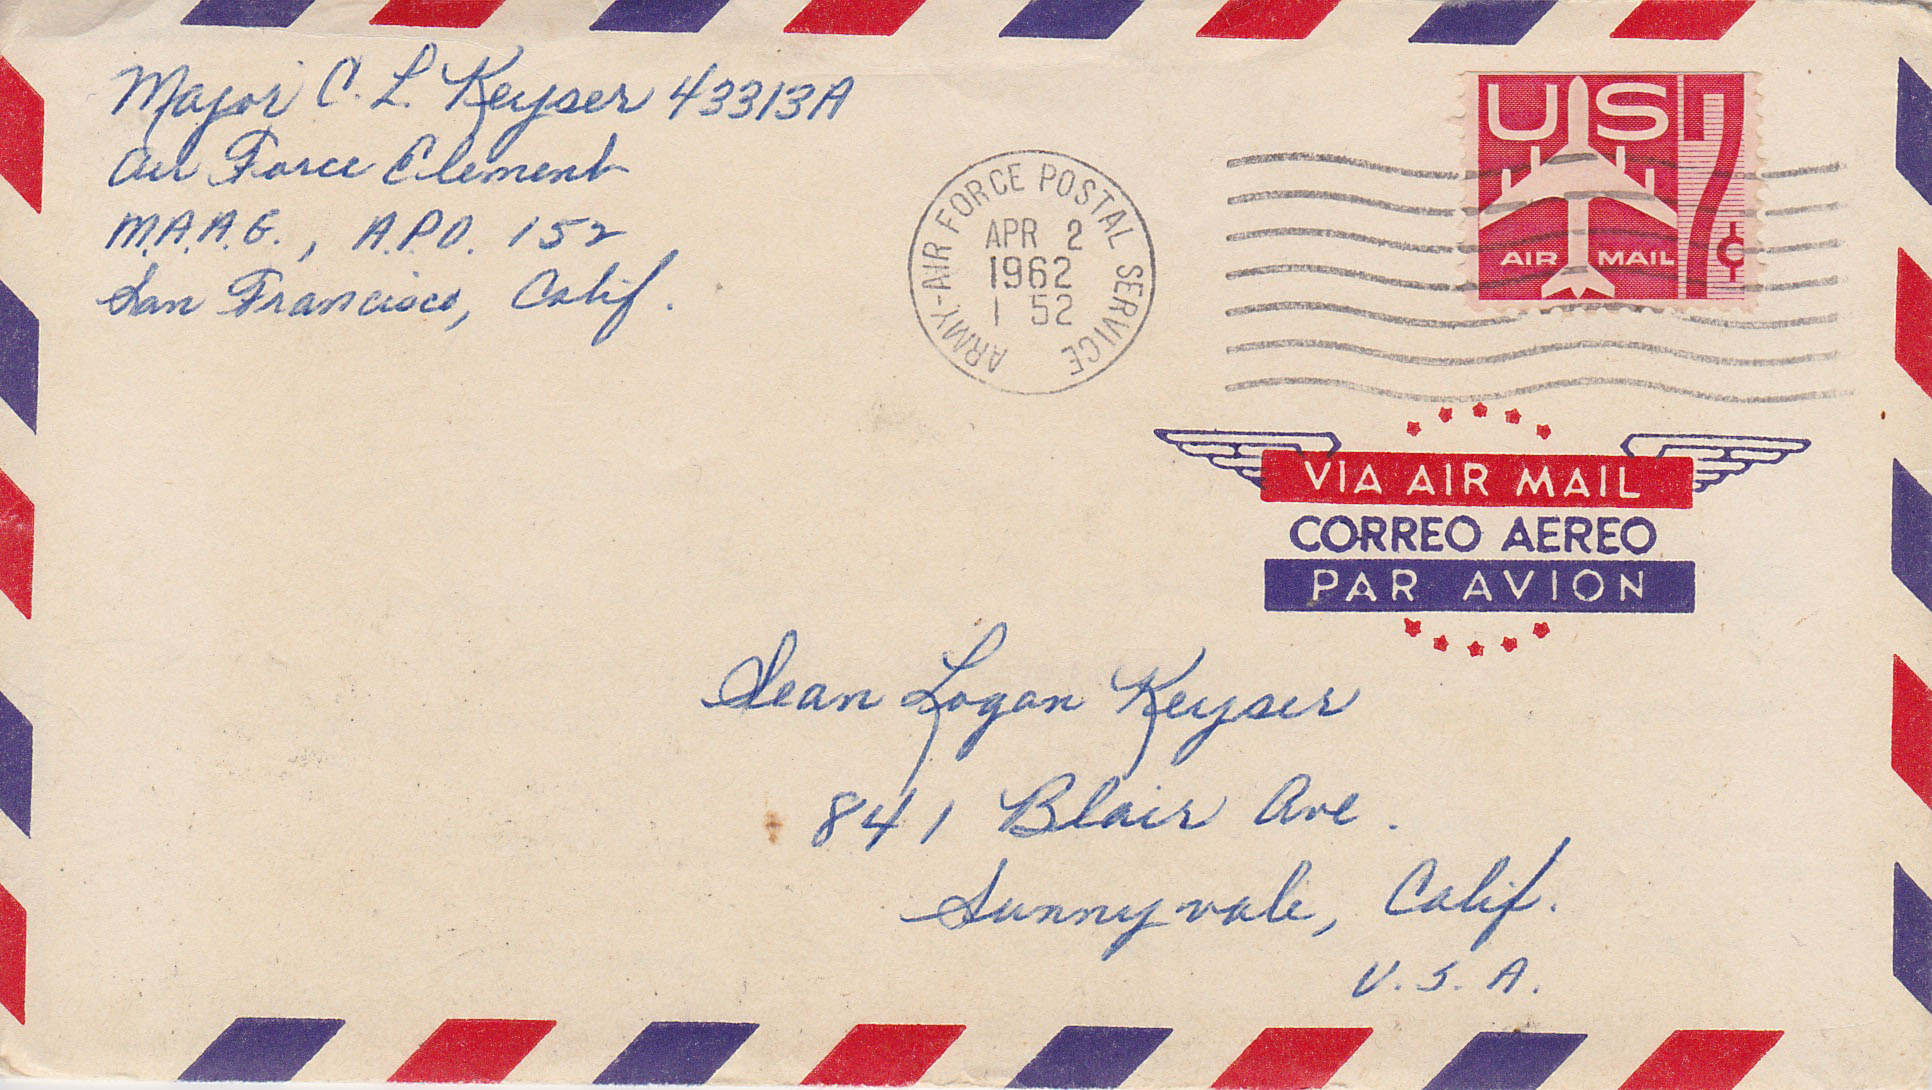 Major C. L. Keyser 43313A
Air Force Element
M.A.A.G., A.P.O. 152
San Francisco, Calif.
ARMY-AIR FORCE POSTAL SERVICE
APR 2
1962
1 52
US 7¢
AIR MAIL
VIA AIR MAIL
CORREO AEREO
PAR AVION
Sean Logan Keyser
841 Blair Ave.
Sunnyvale, Calif.
U.S.A.